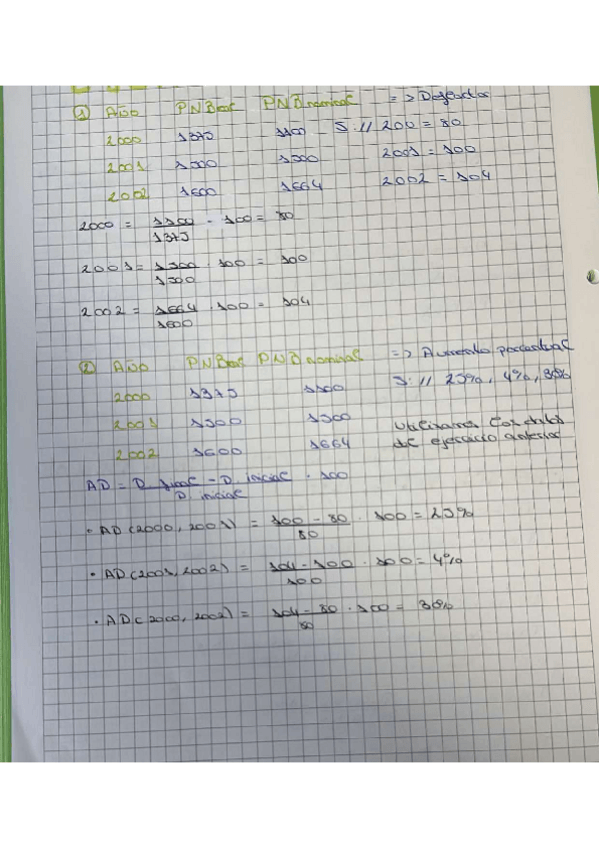 ① Año PNBreal PNBnominal => Deflactor
2000 1375 1100 S:// 200 = 80
2001 1500 1500 2001 = 100
2002 1600 1664 2002 = 104
2000 = 1100/1375 · 100 = 80
2001 = 1500/1500 · 100 = 100
2002 = 1664/1600 · 100 = 104
② Año PNBreal PNBnominal => Aumento porcentual
2000 1375 1100 S:// 25%, 4%, 30%
2001 1500 1500 Utilizamos los datos
2002 1600 1664 del ejercicio anterior
AD = D final - D inicial / D inicial · 100
· AD (2000, 2001) = 100 - 80 / 80 · 100 = 25%
· AD (2001, 2002) = 104 - 100 / 100 · 100 = 4%
· AD (2000, 2002) = 104 - 80 / 80 · 100 = 30%